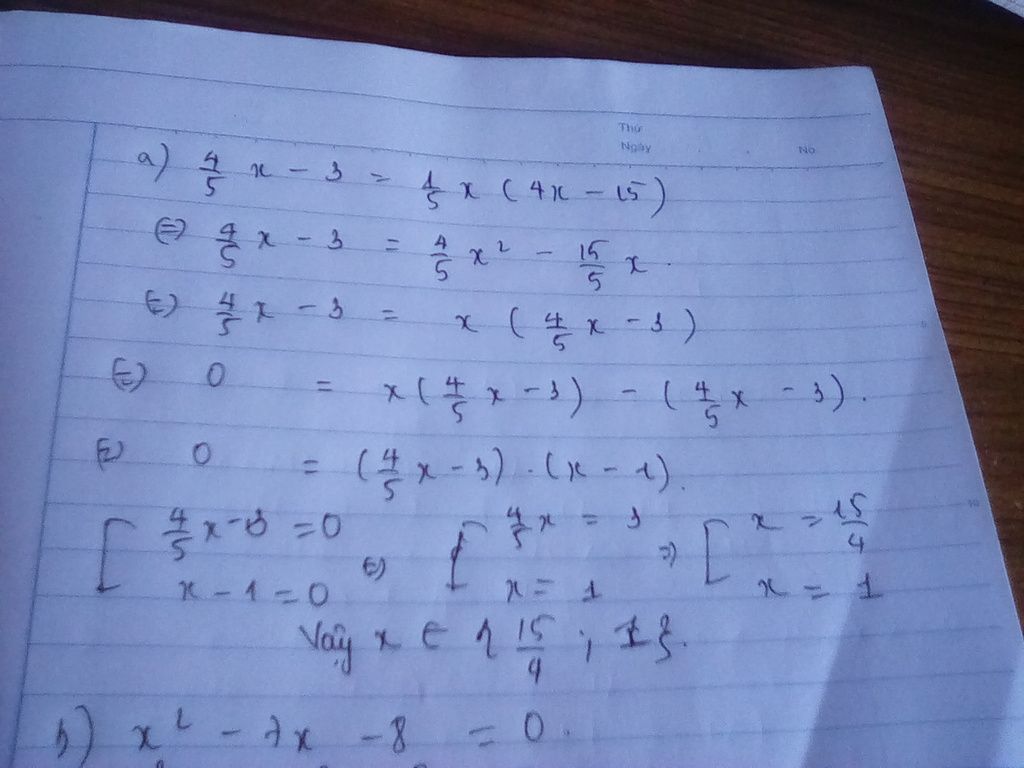 Thứ
Ngày No
a) 4/5 x - 3 = 1/5 x (4x - 15)
(=) 4/5 x - 3 = 4/5 x² - 15/5 x.
(=) 4/5 x - 3 = x (4/5 x - 3)
(=) 0 = x(4/5 x - 3) - (4/5 x - 3).
(=) 0 = (4/5 x - 3) . (x - 1).
[ 4/5 x - 3 = 0 (=) [ 4/5 x = 3 => [ x = 15/4
x - 1 = 0 x = 1 x = 1
Vậy x ∈ { 15/4 ; 1 }.
b) x² - 7x - 8 = 0.